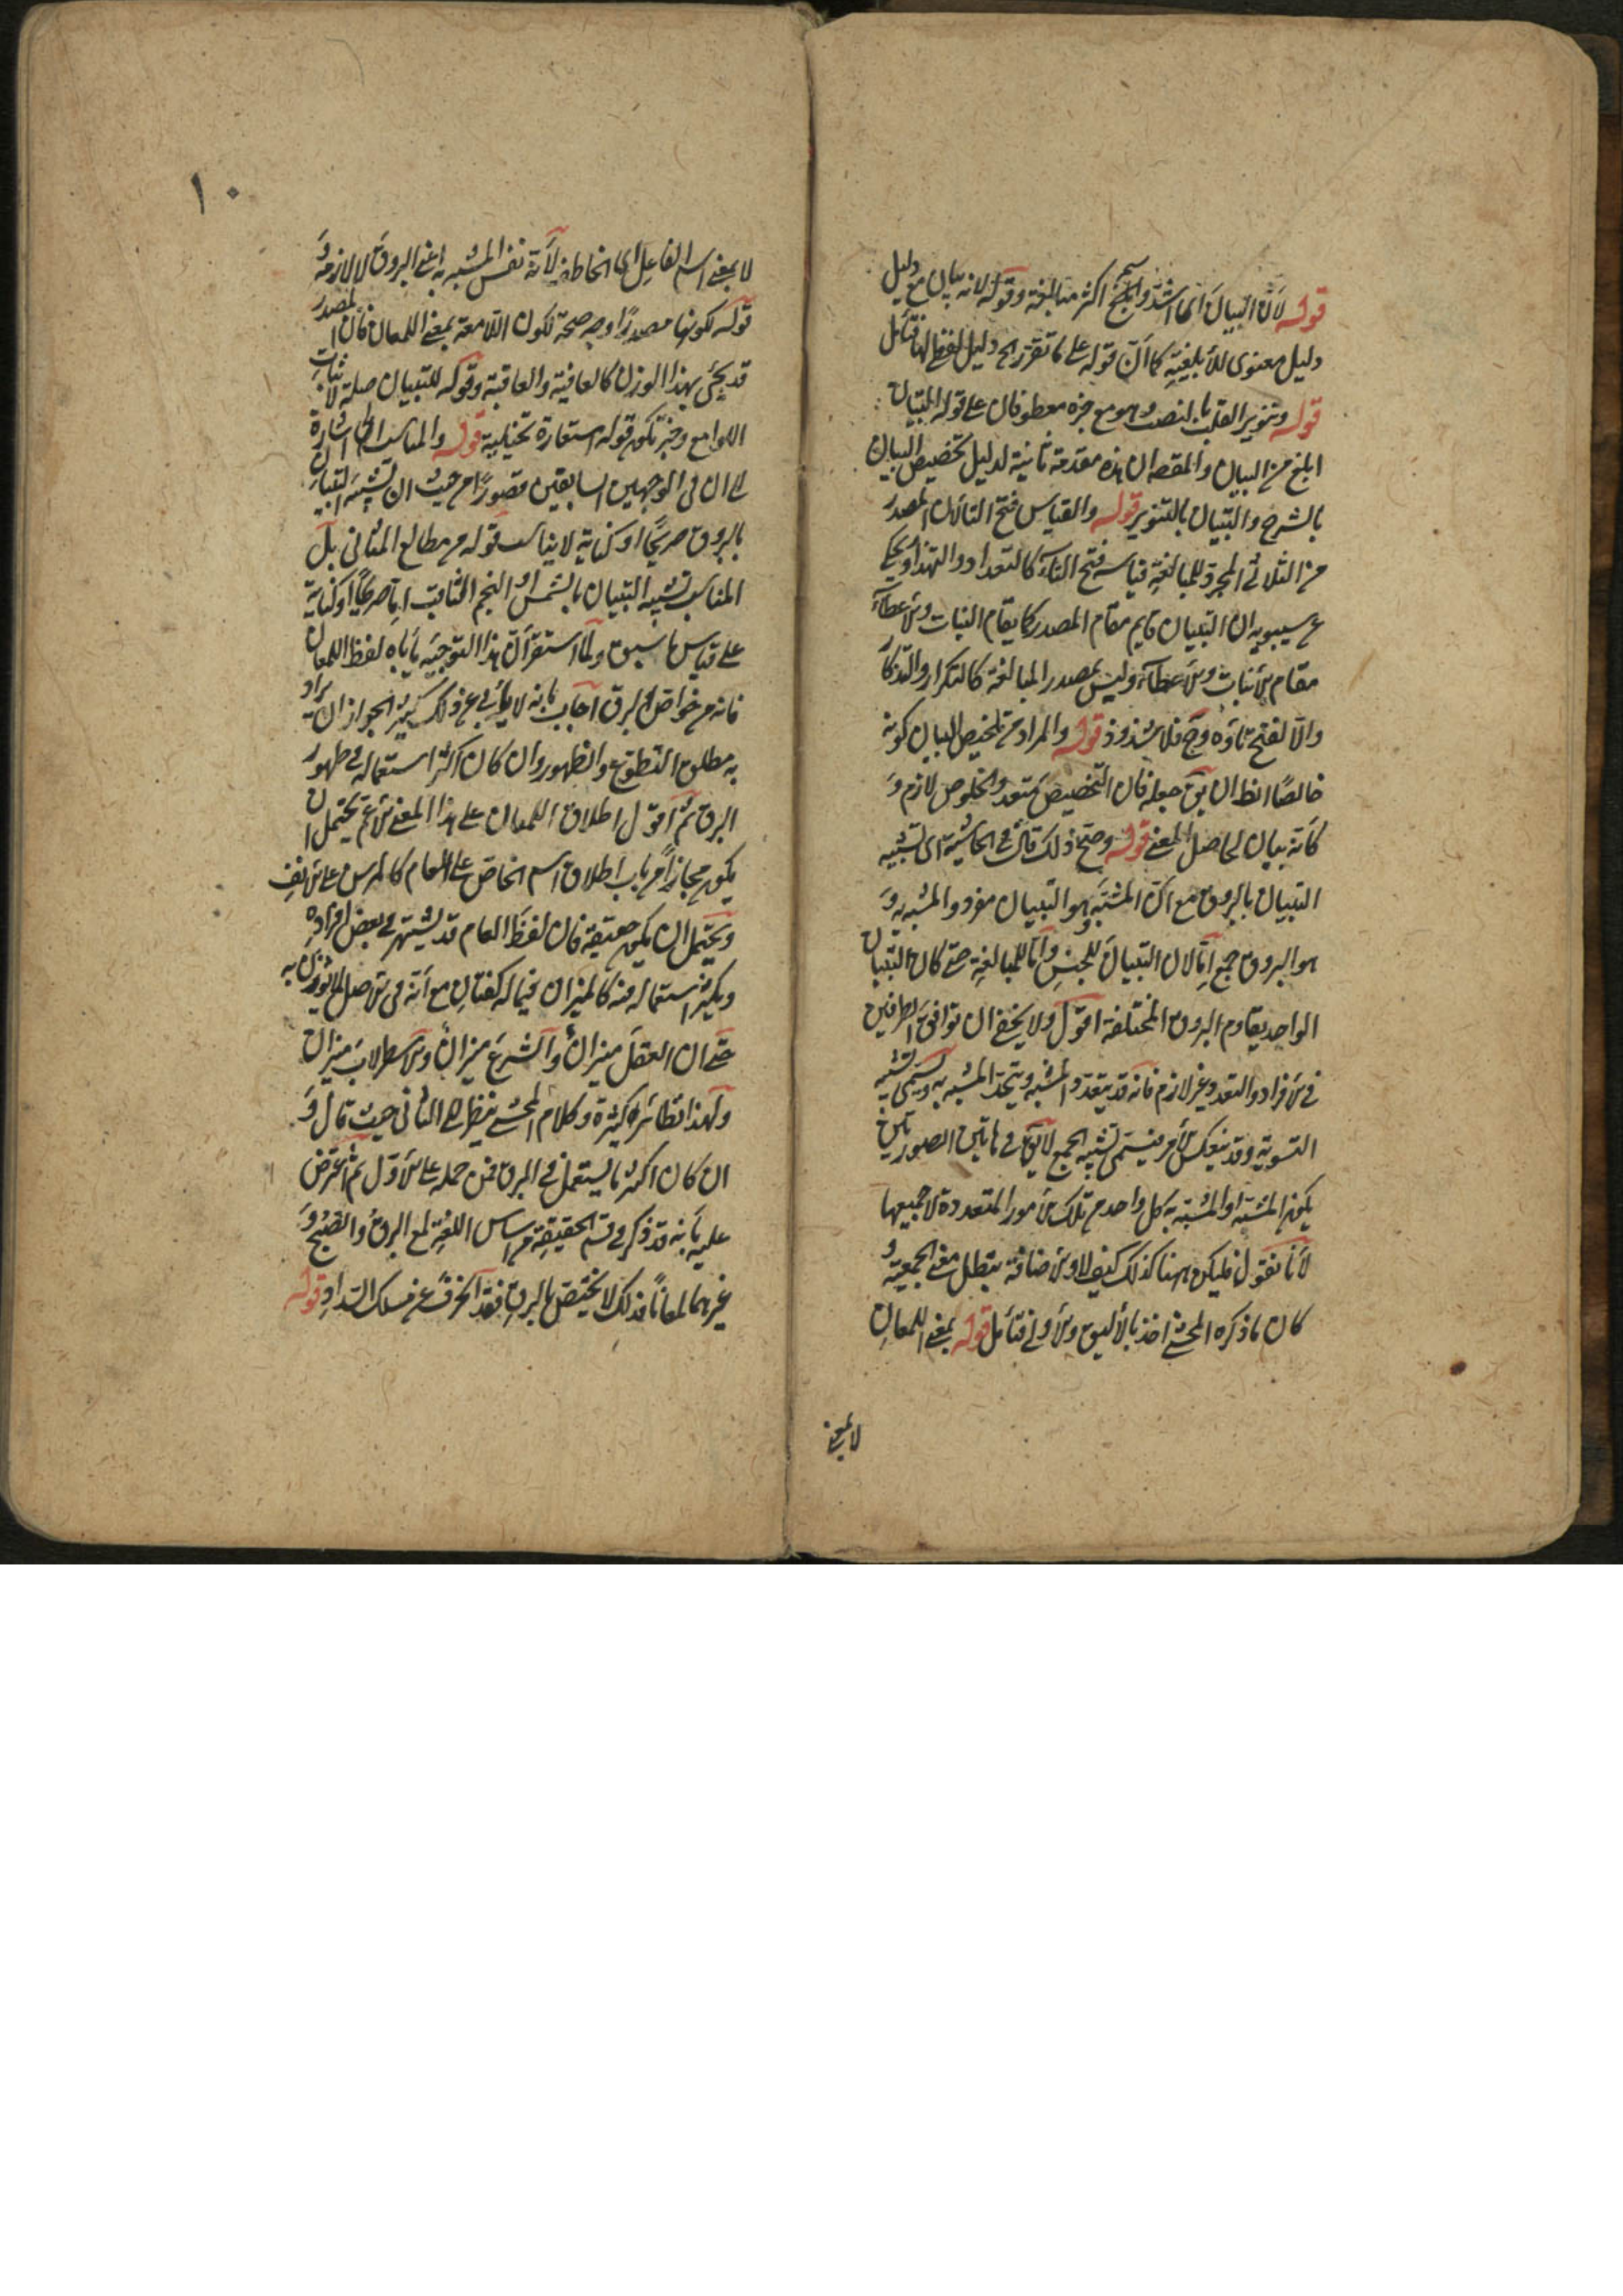 قوله لان التبيان اى اشد وابلغ اكثر مبالغة وقوله لانه بيان مع دليل
دليل معنوى للأبلغية كما ان قوله على ما تقرر الخ دليل لفظى لها فتأمل
قوله وتنوير القلب بالنصب وهو مع خبره معطوفان على قوله التبيان
ابلغ من البيان والمقصد ان هذه مقدمة ثانية لدليل تخصيص البيان
بالشرح والتبيان بالتنوير قوله والقياس فتح التا لان المصدر
من الثلاثى المجرد للمبالغة قياسه فتح التاء كالتعداد والتهذار ويحكى
عن سيبويه ان التبيان قايم مقام المصدر كما يقام النبات والاعطاء
مقام الانبات والاعطاء وليس بمصدر المبالغة كالتكرار والتذكار
والا لفتح تاؤه وح فلا شذوذ قوله والمراد من تلخيص البيان كونه
خالصا الظ ان يق جعله فان التخصيص متعد والخلوص لازم و
كأنه بيان لحاصل المعنى قوله وصح ذلك قال فى الحاشية اى تشبيه
التبيان بالبروق مع ان المشبه وهو التبيان مفرد والمشبه به و
هو البروق جمع اما لان التبيان للجنس واما للمبالغة حتى كان التبيان
الواحد يقاوم البروق المختلفة اقول ولا يخفى ان توافق الطرفين
فى الافراد والتعدد غير لازم فانه قد يتعدد المشبه ويتحد المشبه به ويسمى تشبيه
التسوية وقد ينعكس الامر فيسمى تشبيه الجمع لا يق فى هاتين الصورتين
يكون المشبه او المشبه به كل واحد من تلك الامور المتعددة لا جميعها
لأنا نقول فليكن ههنا كذلك كيف لا والاضافة تبطل معنى الجمعية و
كان ما ذكره المحشى اخذ بالأليق والأولى فتأمل قوله بمعنى اللمعان
لا بمعنى
١٠
لا بمعنى اسم الفاعل اى الخاطف لأنه نفس المشبه به اعنى البروق لا لازمه و
قوله لكونها مصدرا وجه صحة لكون اللامعة بمعنى اللمعان فان المصدر
قد يجئ بهذا الوزن كالعافية والعاقبة وقوله للتبيان صلة لاثبات
اللوامع وخبر تكون قوله استعارة تخييلية قوله والمناسب الخ اشارة
الى ان فى الوجهين السابقين قصورا من حيث ان تشبيه التبيان
بالبروق صريحا او كناية لا يناسب قوله من مطالع المثانى بل
المناسب تشبيه التبيان بالشمس او النجم الثاقب اما صريحا او كناية
على قياس ما سبق ولما استقر ان هذا التوجيه يأباه لفظ اللمعان
فانه من خواص البرق اجاب بانه لا يأبى عن ذلك كثير الجواز ان يراد
به مطلق التطوع والظهور وان كان اكثر استعماله فى ظهور
البرق ثم اقول اطلاق اللمعان على هذا المعنى الاعم يحتمل ان
يكون مجازا من باب اطلاق اسم الخاص على العام كالمرسن على الانف
ويحتمل ان يكون حقيقة فان لفظ العام قد يشتهر فى بعض افراده
ويكثر استعماله فيه كالميزان فيما له كفتان مع انه فى الاصل لما يوزن به
حتى ان العقل ميزان والشرع ميزان والاسطرلاب ميزان
ولهذا نظائر كثيرة وكلام المحشى ينظر الى الثانى حيث قال و
ان كان اكثر ما يستعمل فى البرق فمن حمله على الاول ثم اعترض
عليه بأنه قد ذكر فى قسم الحقيقة من اساس اللغة لمع البرق والصبح و
غيرهما لمعانا فذلك لا يختص بالبرق فقد انحرف عن مسلك السداد قوله